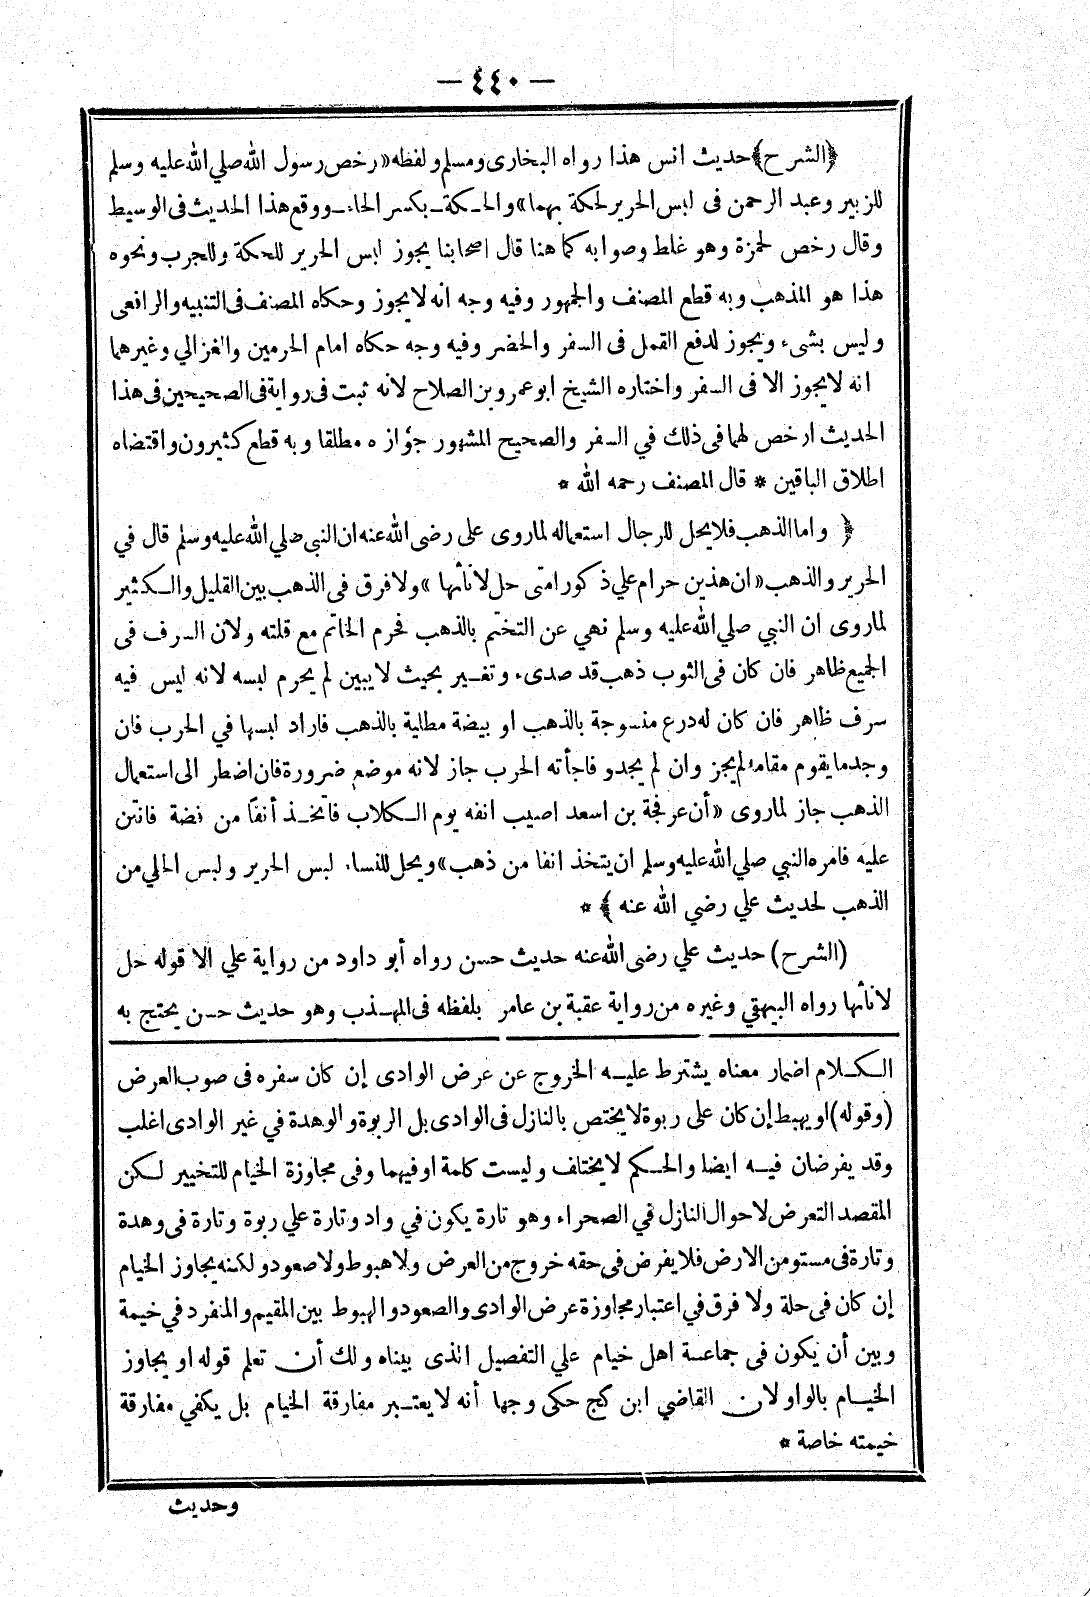 — ٤٤٠ —
﴿الشرح﴾ حديث انس هذا رواه البخارى ومسلم ولفظه «رخص رسول الله صلي الله عليه وسلم
للزبير وعبد الرحمن فى لبس الحرير لحكة بهما» والحكة بكسر الحاء ووقع هذا الحديث فى الوسيط
وقال رخص لحمزة وهو غلط وصوابه كما هنا قال اصحابنا يجوز لبس الحرير للحكة وللجرب ونحوه
هذا هو المذهب وبه قطع المصنف والجمهور وفيه وجه انه لا يجوز وحكاه المصنف فى التنبيه والرافعى
وليس بشىء ويجوز لدفع القمل فى السفر والحضر وفيه وجه حكاه امام الحرمين والغزالي وغيرهما
انه لا يجوز الا فى السفر واختاره الشيخ ابو عمرو بن الصلاح لانه ثبت فى رواية فى الصحيحين فى هذا
الحديث ارخص لهما فى ذلك في السفر والصحيح المشهور جوازه مطلقا وبه قطع كثيرون واقتضاه
اطلاق الباقين * قال المصنف رحمه الله *
﴿ واما الذهب فلا يحل للرجال استعماله لما روى على رضى الله عنه ان النبى صلي الله عليه وسلم قال في
الحرير والذهب «ان هذين حرام علي ذكور امتى حل لاناثها» ولا فرق فى الذهب بين القليل والكثير
لما روى ان النبي صلي الله عليه وسلم نهي عن التختم بالذهب فحرم الخاتم مع قلته ولان السرف فى
الجميع ظاهر فان كان فى الثوب ذهب قد صدىء وتغير بحيث لا يبين لم يحرم لبسه لانه ليس فيه
سرف ظاهر فان كان له درع منسوجة بالذهب او بيضة مطلية بالذهب فاراد لبسها في الحرب فان
وجد ما يقوم مقامه لم يجز وان لم يجد وفاجأته الحرب جاز لانه موضع ضرورة فان اضطر الى استعمال
الذهب جاز لما روى «أن عرفجة بن اسعد اصيب انفه يوم الكلاب فاتخذ أنفا من فضة فانتن
عليه فامره النبي صلي الله عليه وسلم ان يتخذ انفا من ذهب» ويحل للنساء لبس الحرير ولبس الحلي من
الذهب لحديث علي رضي الله عنه ﴾ *
(الشرح) حديث علي رضى الله عنه حديث حسن رواه أبو داود من رواية علي الا قوله حل
لاناثها رواه البيهقي وغيره من رواية عقبة بن عامر بلفظه فى المهذب وهو حديث حسن يحتج به
الكلام اضمار معناه يشترط عليه الخروج عن عرض الوادى إن كان سفره فى صوب العرض
(وقوله) او يهبط إن كان على ربوة لا يختص بالنازل فى الوادى بل الربوة والوهدة في غير الوادى اغلب
وقد يفرضان فيه ايضا والحكم لا يختلف وليست كلمة او فيهما وفى مجاوزة الخيام للتخيير لكن
المقصد التعرض لاحوال النازل في الصحراء وهو تارة يكون في واد وتارة علي ربوة وتارة فى وهدة
وتارة فى مستو من الارض فلا يفرض فى حقه خروج من العرض ولا هبوط ولا صعود ولكنه يجاوز الخيام
إن كان فى حلة ولا فرق في اعتبار مجاوزة عرض الوادى والصعود والهبوط بين المقيم والمنفرد في خيمة
وبين أن يكون فى جماعة اهل خيام علي التفصيل الذى بيناه ولك أن تعلم قوله او يجاوز
الخيام بالواو لان القاضي ابن كج حكى وجها أنه لا يعتبر مفارقة الخيام بل يكفي مفارقة
خيمته خاصة *
وحديث